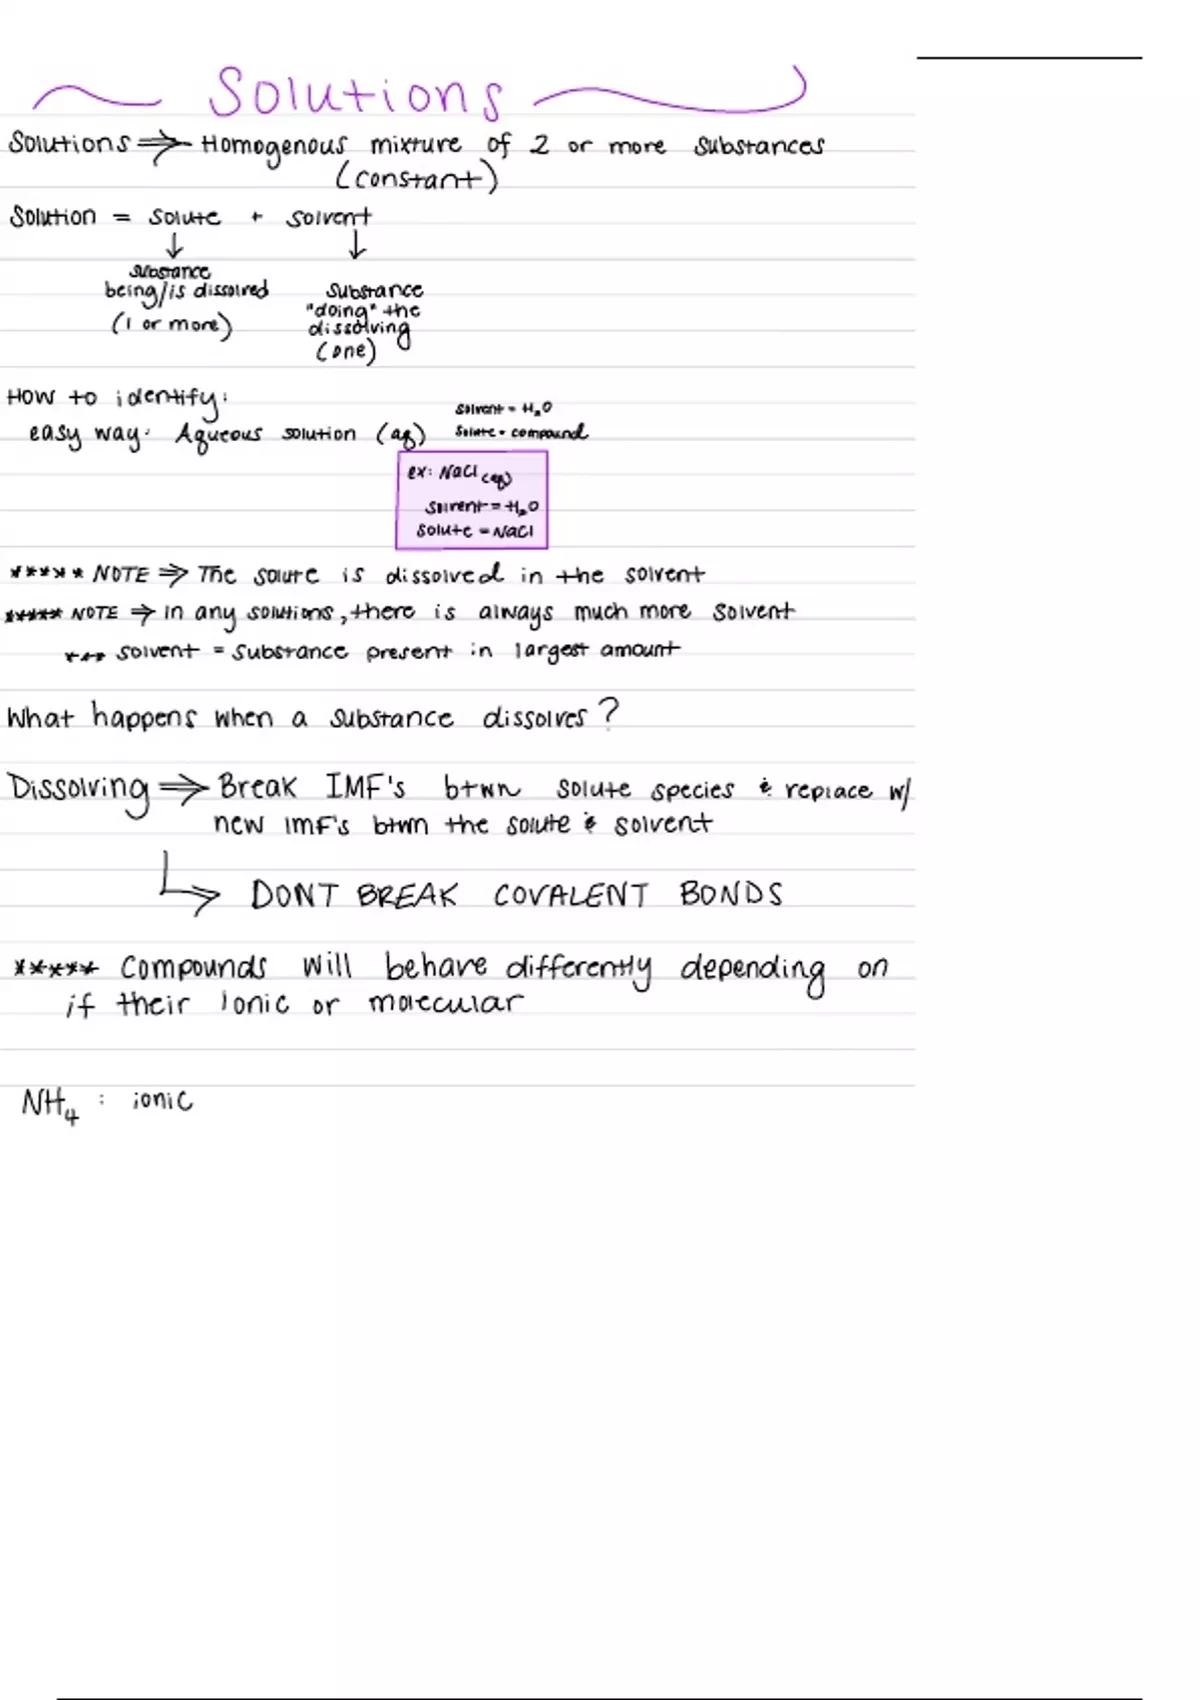 Solutions
Solutions ⇒ Homogenous mixture of 2 or more substances
(constant)
Solution = solute + solvent
↓ ↓
substance
being/is dissolved
(1 or more)
substance
"doing" the
dissolving
(one)
How to identify:
solvent = H₂O
easy way: Aqueous solution (aq)
solute = compound
ex: NaCl (aq)
solvent = H₂O
solute = NaCl
***** NOTE ⇒ The solute is dissolved in the solvent
***** NOTE ⇒ in any solutions, there is always much more solvent
*** solvent = substance present in largest amount
What happens when a substance dissolves?
Dissolving ⇒ Break IMF's btwn solute species & replace w/
new IMF's btwn the solute & solvent
↳ DONT BREAK COVALENT BONDS
***** Compounds will behave differently depending on
if their Ionic or molecular
NH₄ : ionic